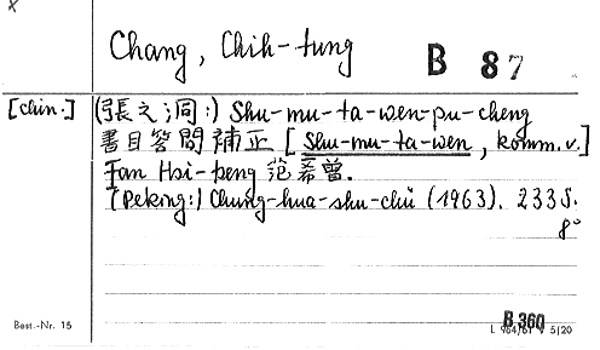 x
Chang, Chih-tung
B 87
[chin.] (張之洞:) Shu-mu-ta-wen-pu-cheng
書目答問補正 [Shu-mu-ta-wen, komm. v.]
Fan Hsi-tseng 范希曾.
(Peking:) Chung-hua-shu-chü (1963). 233 S.
8°
B 360
Best.-Nr. 15